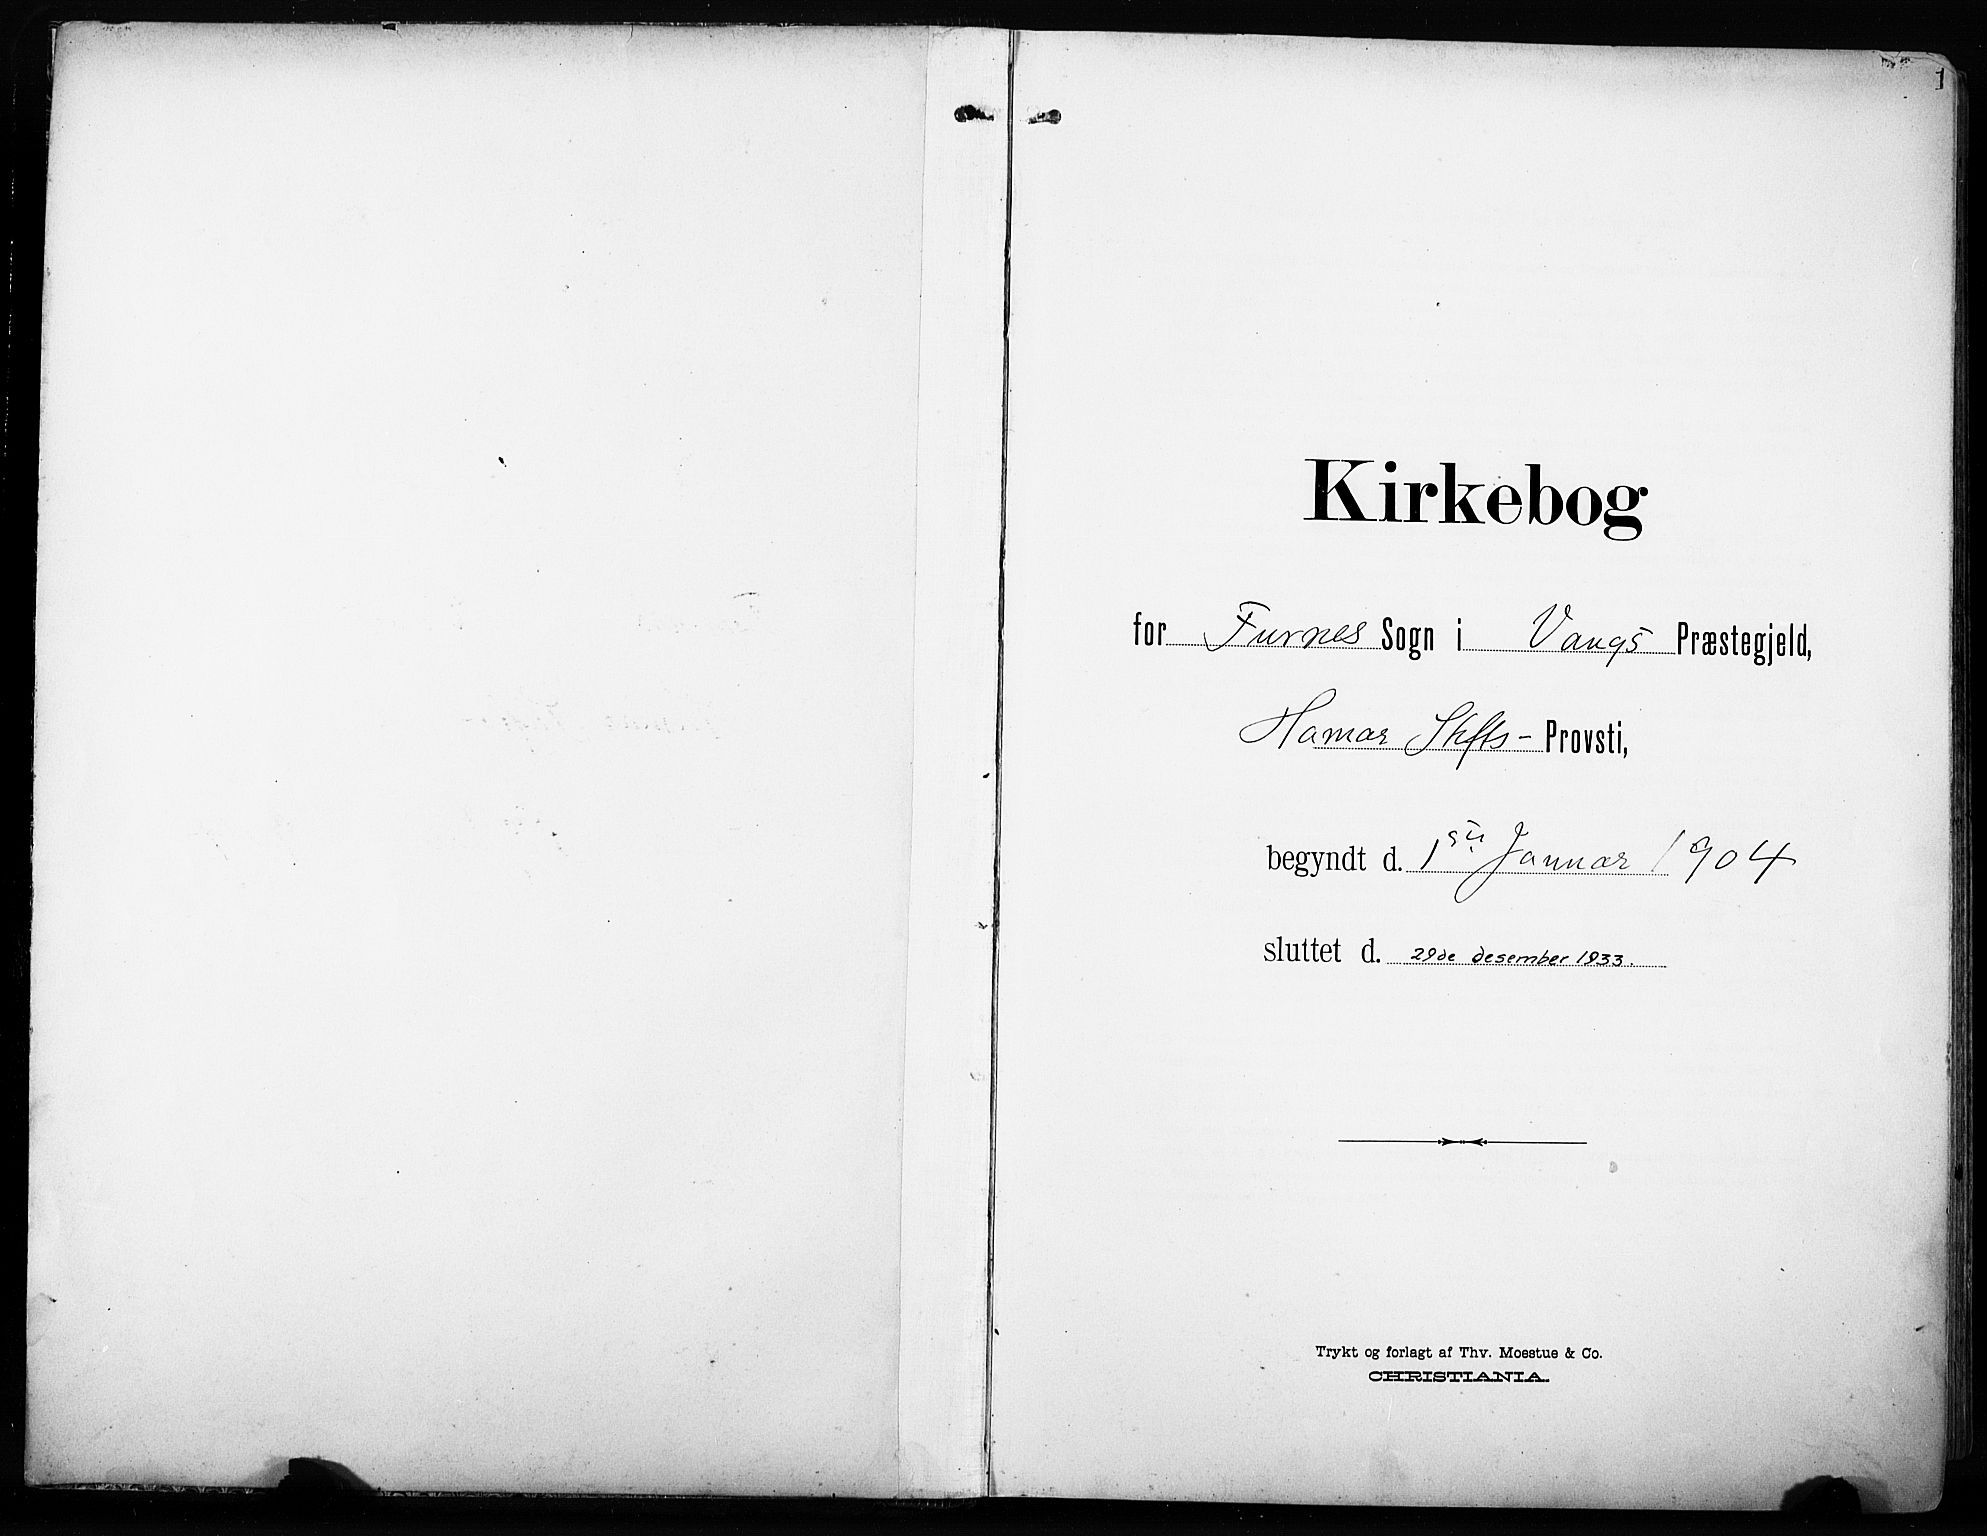 1
Kirkebog
for Furnes Sogn i Vangs Præstegjeld,
Hamar Stifts- Provsti,
begyndt d. 1ste Januar 1904
sluttet d. 29de desember 1933.
Trykt og forlagt af Thv. Moestue & Co.
CHRISTIANIA.